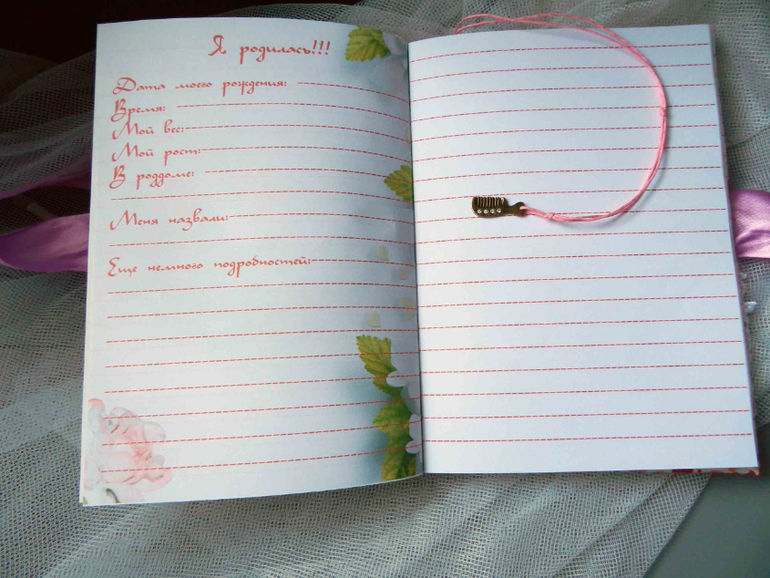 Я родилась!!!
Дата моего рождения:
Время:
Мой вес:
Мой рост:
В роддоме:
Меня назвали:
Еще немного подробностей: